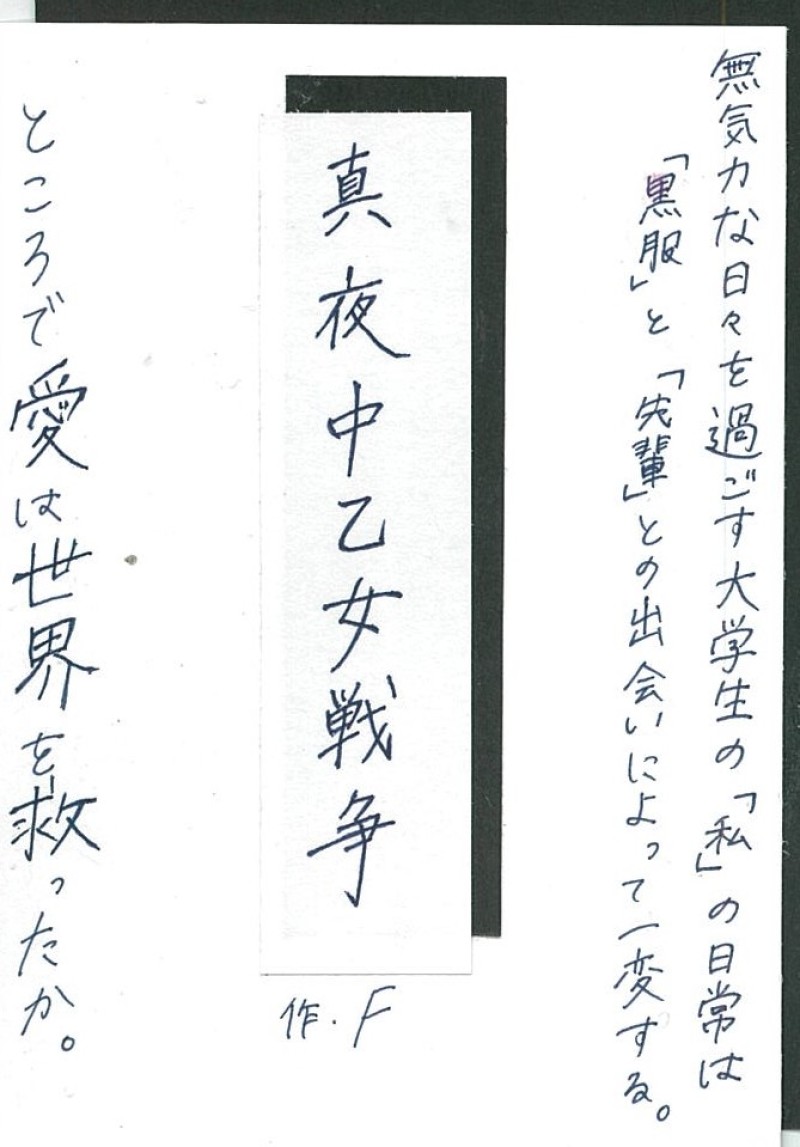 無気力な日々を過ごす大学生の「私」の日常は
「黒服」と「先輩」との出会いによって一変する。
真夜中乙女戦争
作.F
ところで愛は世界を救ったか。